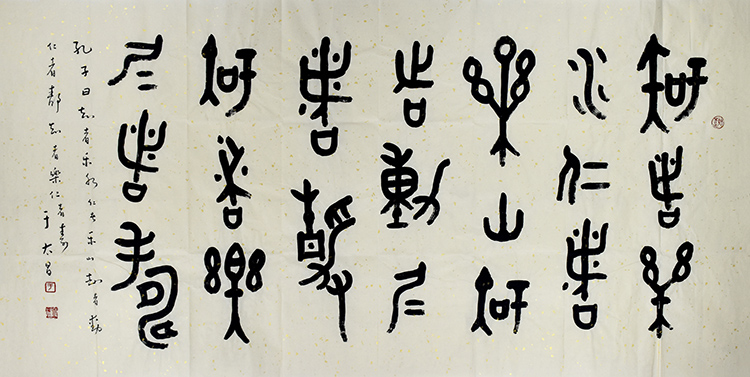 知者樂
水仁者
樂山知
者動仁
者靜
知者樂
仁者壽
孔子曰知者乐水仁者乐山知者動
仁者靜知者樂仁者壽 于太昌